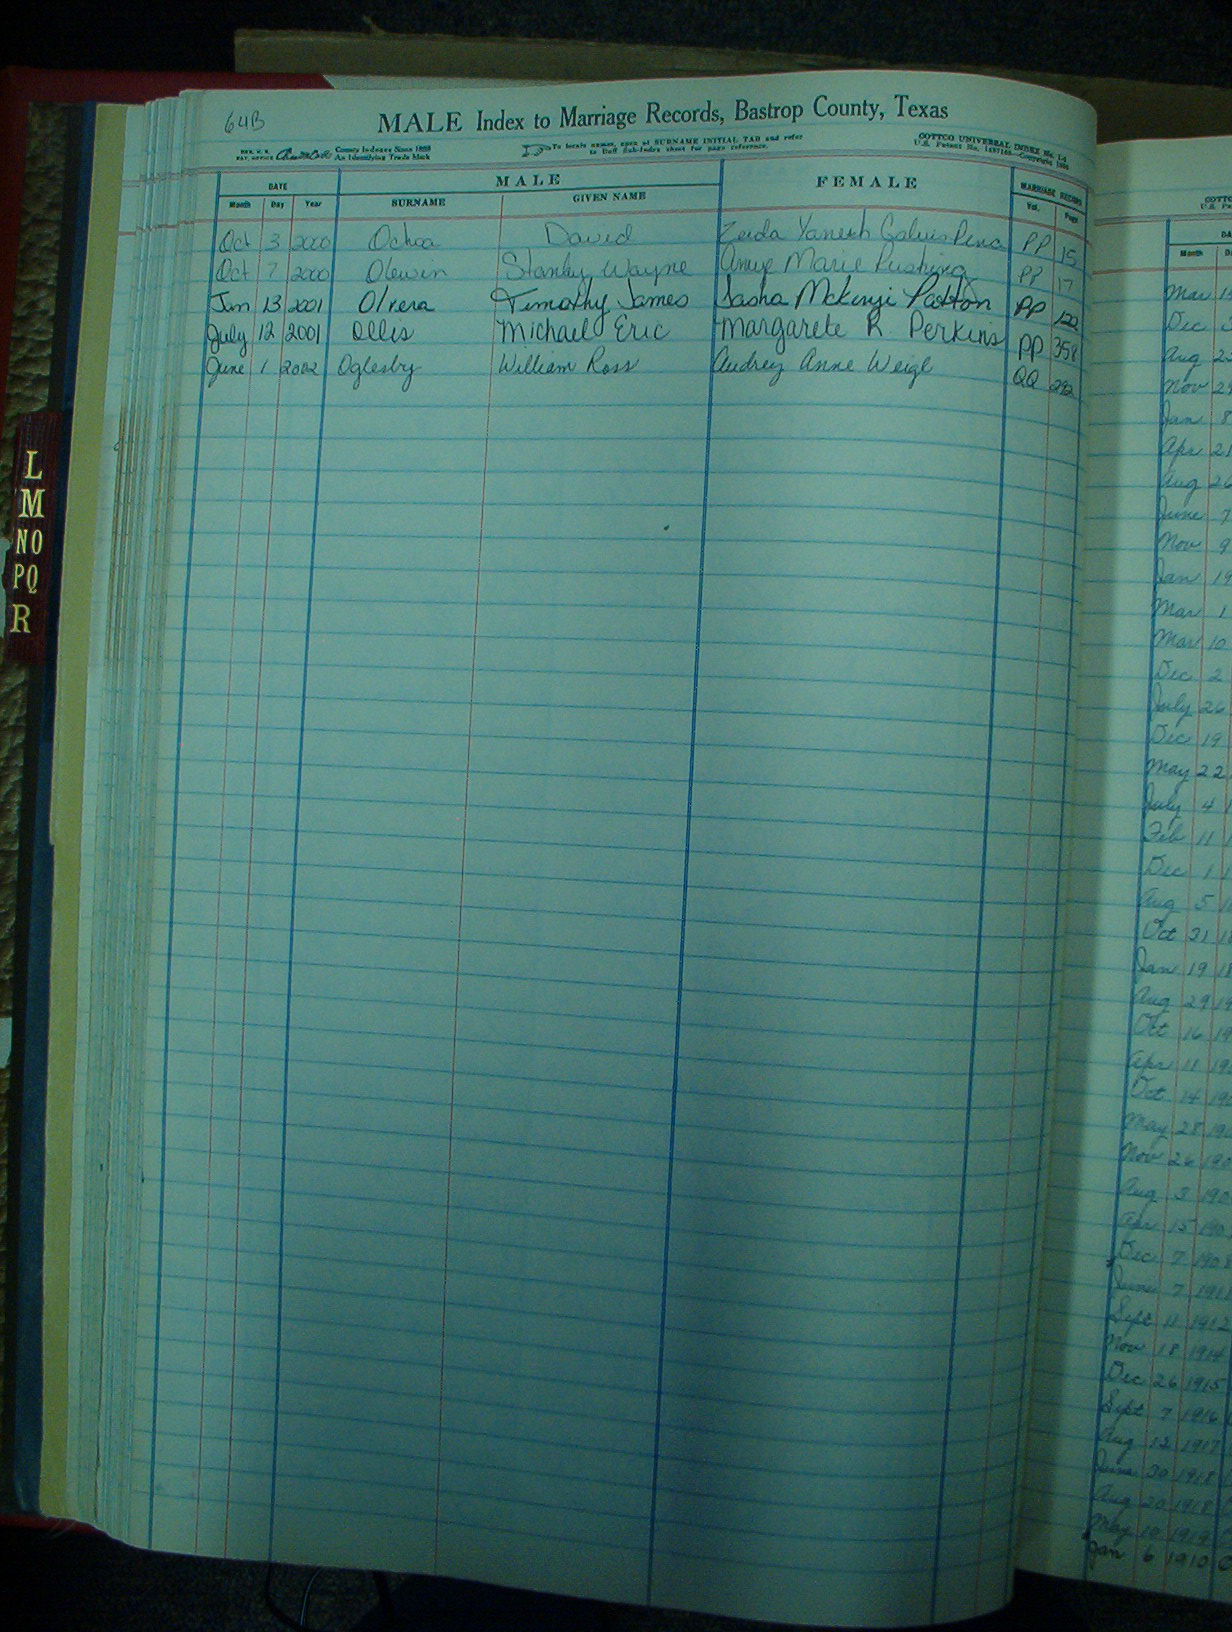 64B
MALE Index to Marriage Records, Bastrop County, Texas
County Indexes Since 1888
An Identifying Trade Mark
To locate names, open at SURNAME INITIAL TAB and refer
to Buff Sub-Index sheet for page reference.
COTTCO UNIVERSAL INDEX No. 1-4
DATE MALE FEMALE MARRIAGE RECORD
Month Day Year SURNAME GIVEN NAME Vol. Page
Oct 3 2000 Ochoa David Yaneth Galvis Pena PP 15
Oct 7 2000 Olewin Stanley Wayne Marie Pushing PP 17
Jan 13 2001 Olvera Timothy James Sasha McKenzi Patton PP 122
July 12 2001 Ollis Michael Eric Margarete R. Perkins PP 358
June 1 2002 Oglesby William Ross Audrey Anne Weigl QQ 292
L
M
NO
PQ
R
Month
Mar
Dec
Aug
Nov
Jan 8
Apr
Aug 26
June 7
Nov 9
Jan 19
Mar 1
Mar 10
Dec 2
July 26
Dec 19
May 22
July 4
Feb 11
Dec 1
Aug 5
Oct 21
Jan 19
Aug 29
Oct 16
Apr 11
Oct 14
May 28
Nov 26
Aug 3
Apr 15
Dec 7 1908
June 7
Sept 11 1912
Nov 18 1914
Dec 26 1915
Sept 7 1916
Aug 12 1917
June 30 1918
Aug 20 1918
May 10 1919
Jan 6 1910